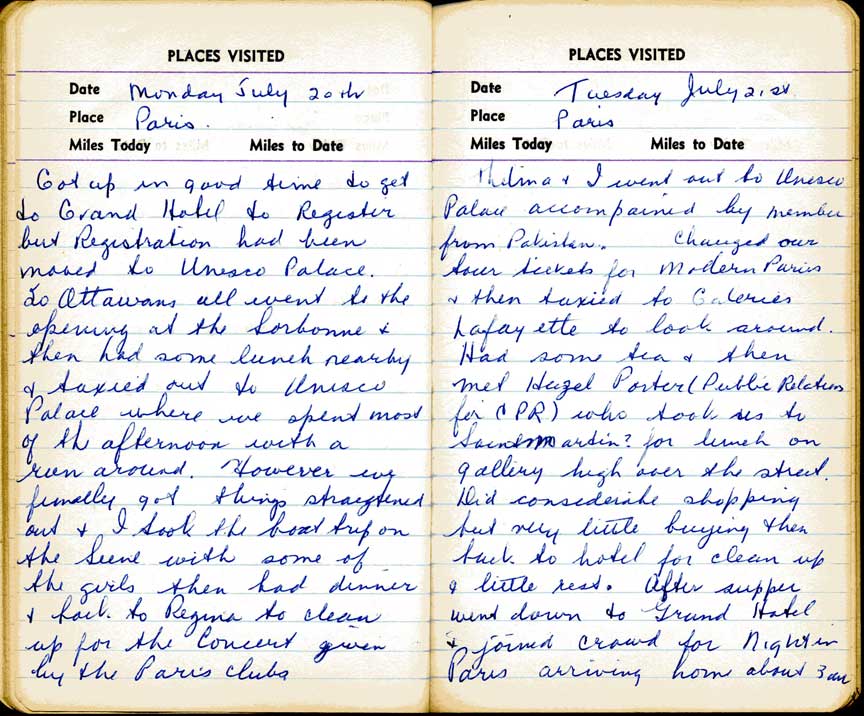 PLACES VISITED
Date Monday July 20th
Place Paris.
Miles Today Miles to Date
Got up in good time to get
to Grand Hotel to Register
but Registration had been
moved to Unesco Palace.
So Ottawans all went to the
opening at the Sorbonne &
then had some lunch nearby
& taxied out to Unesco
Palace where we spent most
of th afternoon with a
run around. However we
finally got things straigtened
out & I took the boat trip on
the Seene with some of
the girls then had dinner
& back to Regina to clean
up for the Concert given
by the Paris clubs
PLACES VISITED
Date Tuesday July 21st.
Place Paris
Miles Today Miles to Date
Thelma & I went out to Unesco
Palace accompained by member
from Pakistan. Changed our
tour tickets for Modern Paris
& then taxied to Galeries
Lafayette to look around.
Had some tea & then
met Hazel Porter (Public Relations
for CPR) who took us to
Saint Martin? for lunch on
gallery high over the street.
Did considerable shopping
but very little buying & then
back to hotel for clean up
& little rest. After supper
went down to Grand Hotel
& joined crowd for Night in
Paris arriving home about 3 am